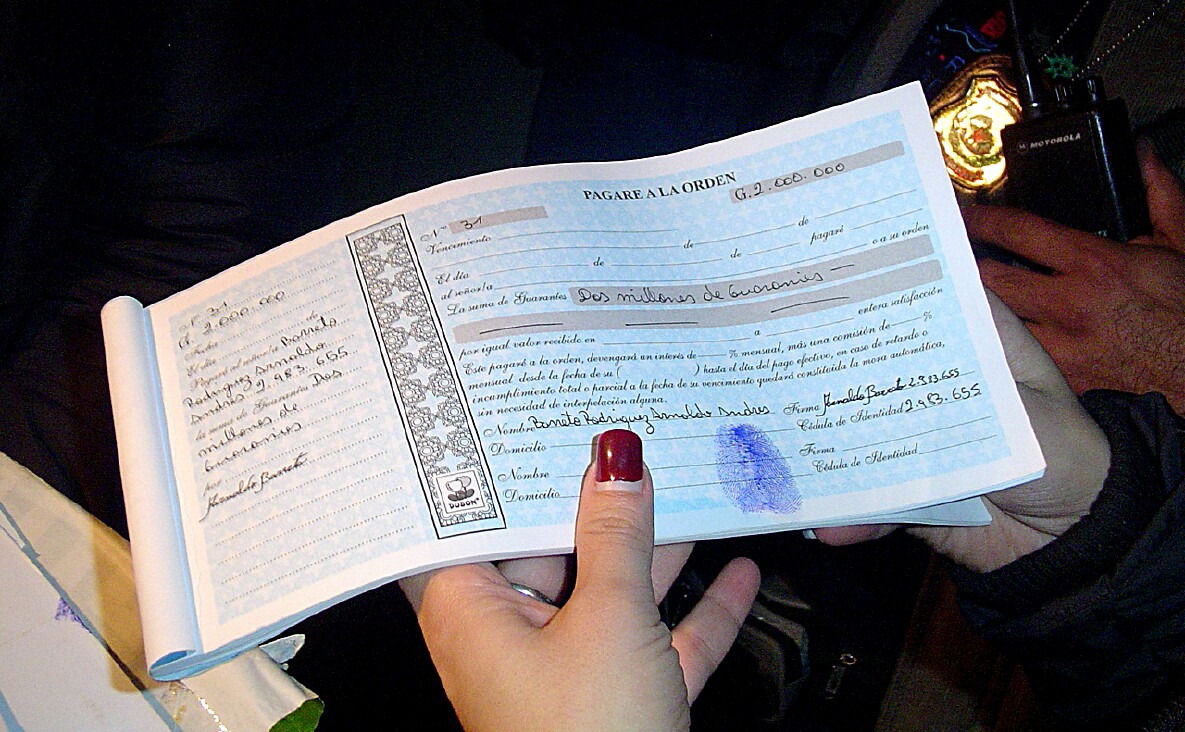 Nº 31
G. 2.000.000
de
El día
Páguese al señor/a Barreto
Rodriguez Arnaldo
Andres 2.983.655
la suma de Guaraníes Dos
millones de
Guaranies
por
Arnaldo Barreto
DUBON
PAGARE A LA ORDEN
Nº 31
G. 2.000.000
Vencimiento de de
El día de de pagaré
al señor/a o a su orden
La suma de Guaraníes Dos millones de Guaranies —
por igual valor recibido en a entera satisfacción
Este pagaré a la orden, devengará un interés de % mensual, más una comisión de %
mensual desde la fecha de su ( ) hasta el día del pago efectivo, en caso de retardo o
incumplimiento total o parcial a la fecha de su vencimiento quedará constituida la mora automática,
sin necesidad de interpelación alguna.
Nombre Barreto Rodriguez Arnaldo Andres Firma Arnaldo Barreto 2.983.655
Domicilio Cédula de Identidad 2.983.655
Nombre Firma
Domicilio Cédula de Identidad
MOTOROLA